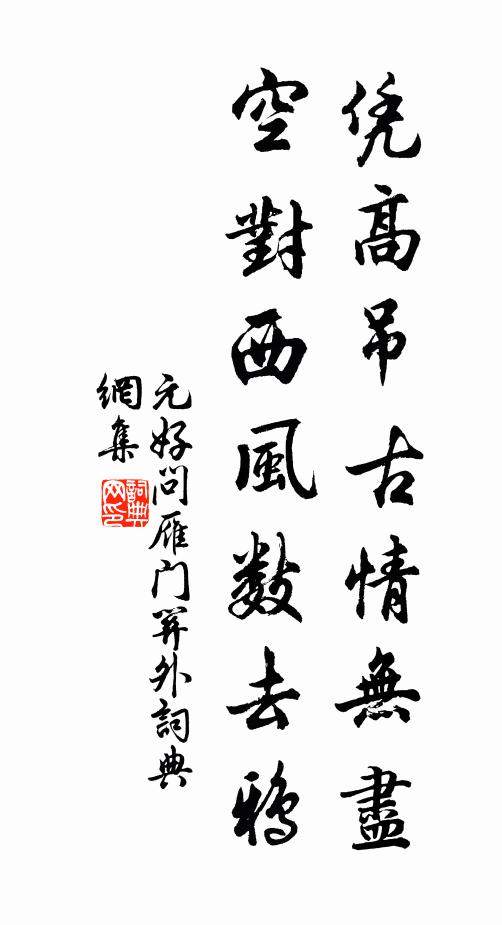 凭高吊古情無盡
空對西風数去鴉
元好问雁门関外詞典
網集
詞典
网印